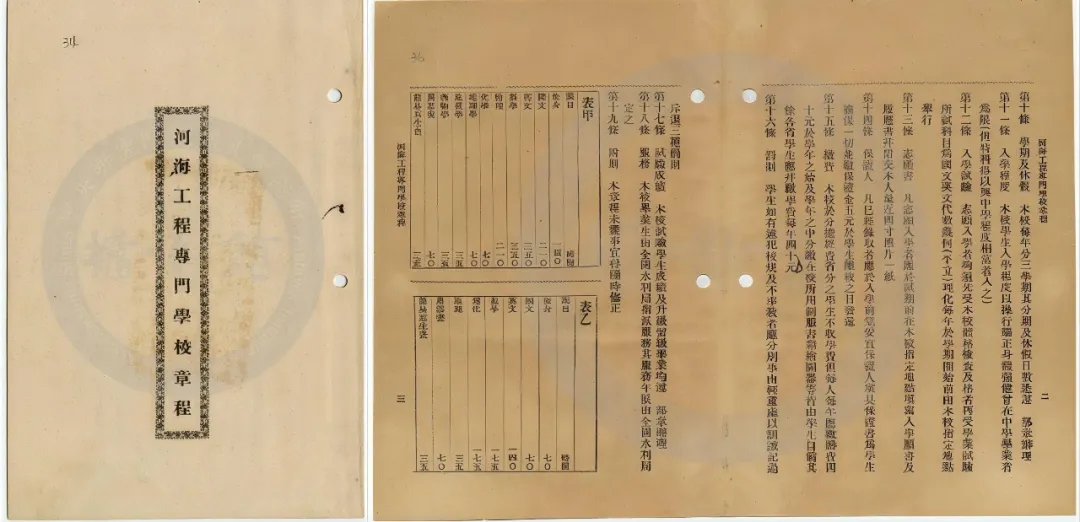 河海工程專門學校章程
河海工程專門學校章程
二
第十條 學期及休假 本校每年分三學期其分期及休假日數悉遵 部章辦理
第十一條 入學程度 本校學生入學程度以操行端正身體強健曾在中學畢業者
為限(但特科得以與中學程度相當者入之)
第十二條 入學試驗 志願入學者須先受本校體格檢查及格者再受學業試驗
所試科目為國文英文代數幾何(平立)理化每年於學期開始前由本校指定地點
舉行
第十三條 志願書 凡志願入學者應於試期前在本校指定地點填寫入學願書及
履歷書并附交本人最近四寸照片一紙
第十四條 保證人 凡已經錄取者應於入學前覓妥實保證人填具保證書為學生
擔保一切並繳保證金五元於學生離校之日發還
第十五條 繳費 本校於分擔經費省分之學生不收學費但每人每年應繳膳費四
十元於學年之始及學年之中分繳在校所用制服書籍繪圖器等皆由學生自備其
餘各省學生應并繳學費每年四十元
第十六條 罰則 學生如有違犯校規及不率教者應分別事由輕重處以訓誡記過
斥退三種罰則
第十七條 試驗成績 本校試驗學生成績及升級留級畢業均遵 部章辦理
第十八條 服務 本校畢業生由全國水利局指派服務其服務年限由全國水利局
定之
第十九條 附則 本章程未盡事宜得隨時修正
表甲
項目 時間
修身 一四〇
國文 二一〇
英文 三五〇
數學 三五〇
物理 二一〇
化學 七〇
表乙
項目 時間
修身 七〇
國文 七〇
英文 一四〇
數學 一七五
理化 一七五
河海工程專門學校章程
三